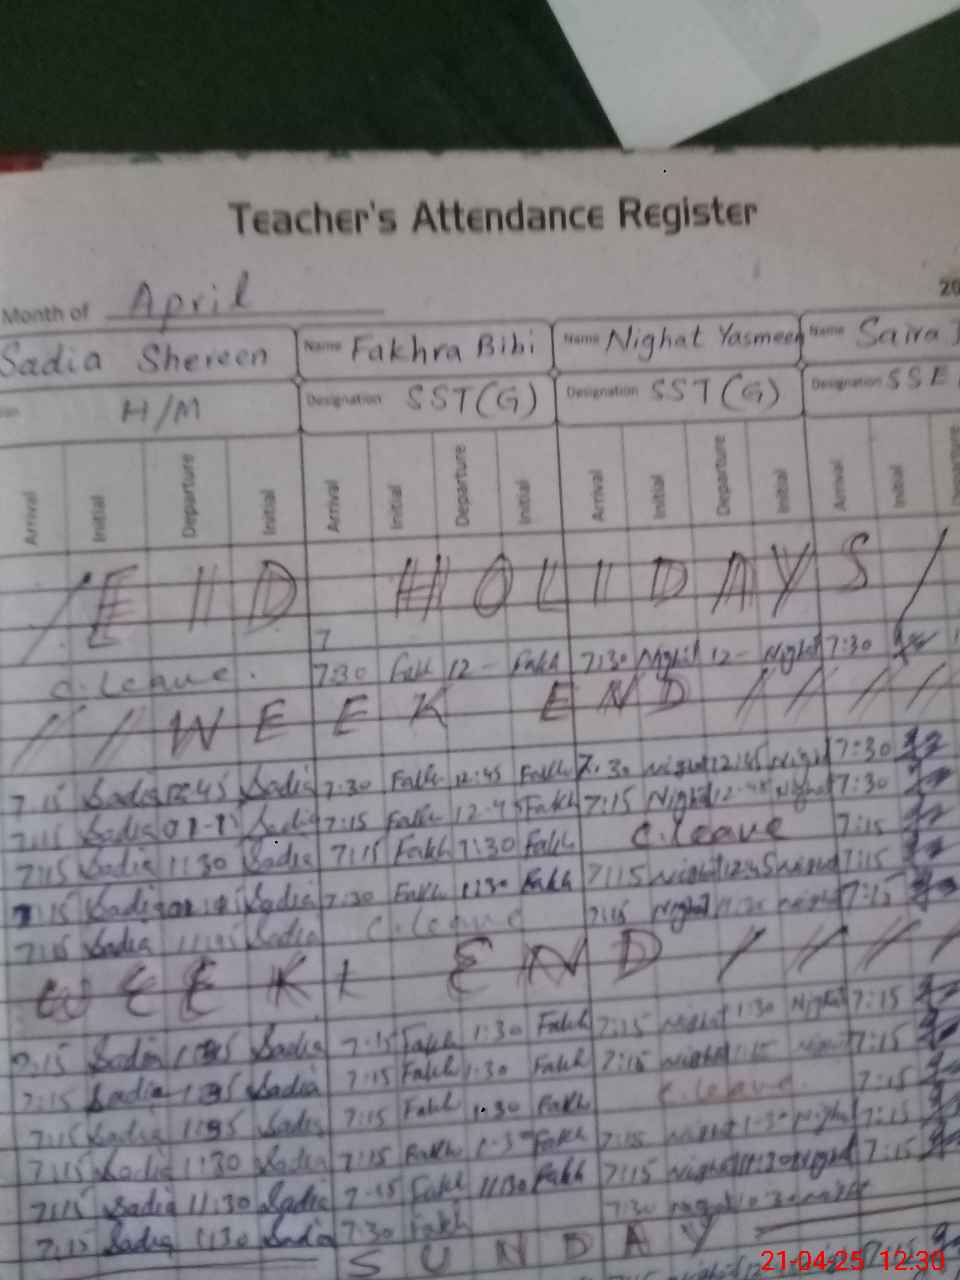 Teacher's Attendance Register
Month of April 20
Sadia Shereen Name Fakhra Bibi Name Nighat Yasmeen Name Saira
H/M Designation SST(G) Designation SST(G) Designation SSE
Arrival Initial Departure Initial Arrival Initial Departure Initial Arrival Initial Departure Initial Arrival Initial Departure
/ E I D H O L I D A Y S /
7
C.Leave. 7:30 Fakh 12 - Fakh 7:30 Night 12 - Night 7:30
// // W E E K E N D / / / / /
7:15 Sadia 12:45 Sadia 7:30 Fakh 12:45 Fakh 7:30 Night 12:45 Night 7:30
7:15 Sadia Sadia 7:15 Fakh 12-45 Fakh 7:15 Night 12-45 Night 7:30
7:15 Sadia 11:30 Sadia 7:15 Fakh 7:30 Fakh C.leave 7:15
7:15 Sadia Sadia 7:30 Fakh 1:30 Fakh 7:15 Night 12:45 Night 7:15
7:15 Sadia Sadia C.leave 7:15 Night Night 7:15
W E E K E N D / / / /
7:15 Sadia Sadia 7:15 Fakh 1:30 Fakh 7:15 Night 1:30 Night 7:15
7:15 Sadia Sadia 7:15 Fakh 1:30 Fakh 7:15 Night 1:15 Night 7:15
7:15 Sadia Sadia 7:15 Fakh 1:30 Fakh C.leave. 7:15
7:15 Sadia 1:30 Sadia 7:15 Fakh 1-30 Fakh 7:15 Night 1-30 Night 7:15
7:15 Sadia 11:30 Sadia 7:15 Fakh 11:30 Fakh 7:15 Night 11:30 Night 7:15
7:15 Sadia 1:30 Sadia 7:30 Fakh 7:30
S U N D A Y
21-04-25 12:30